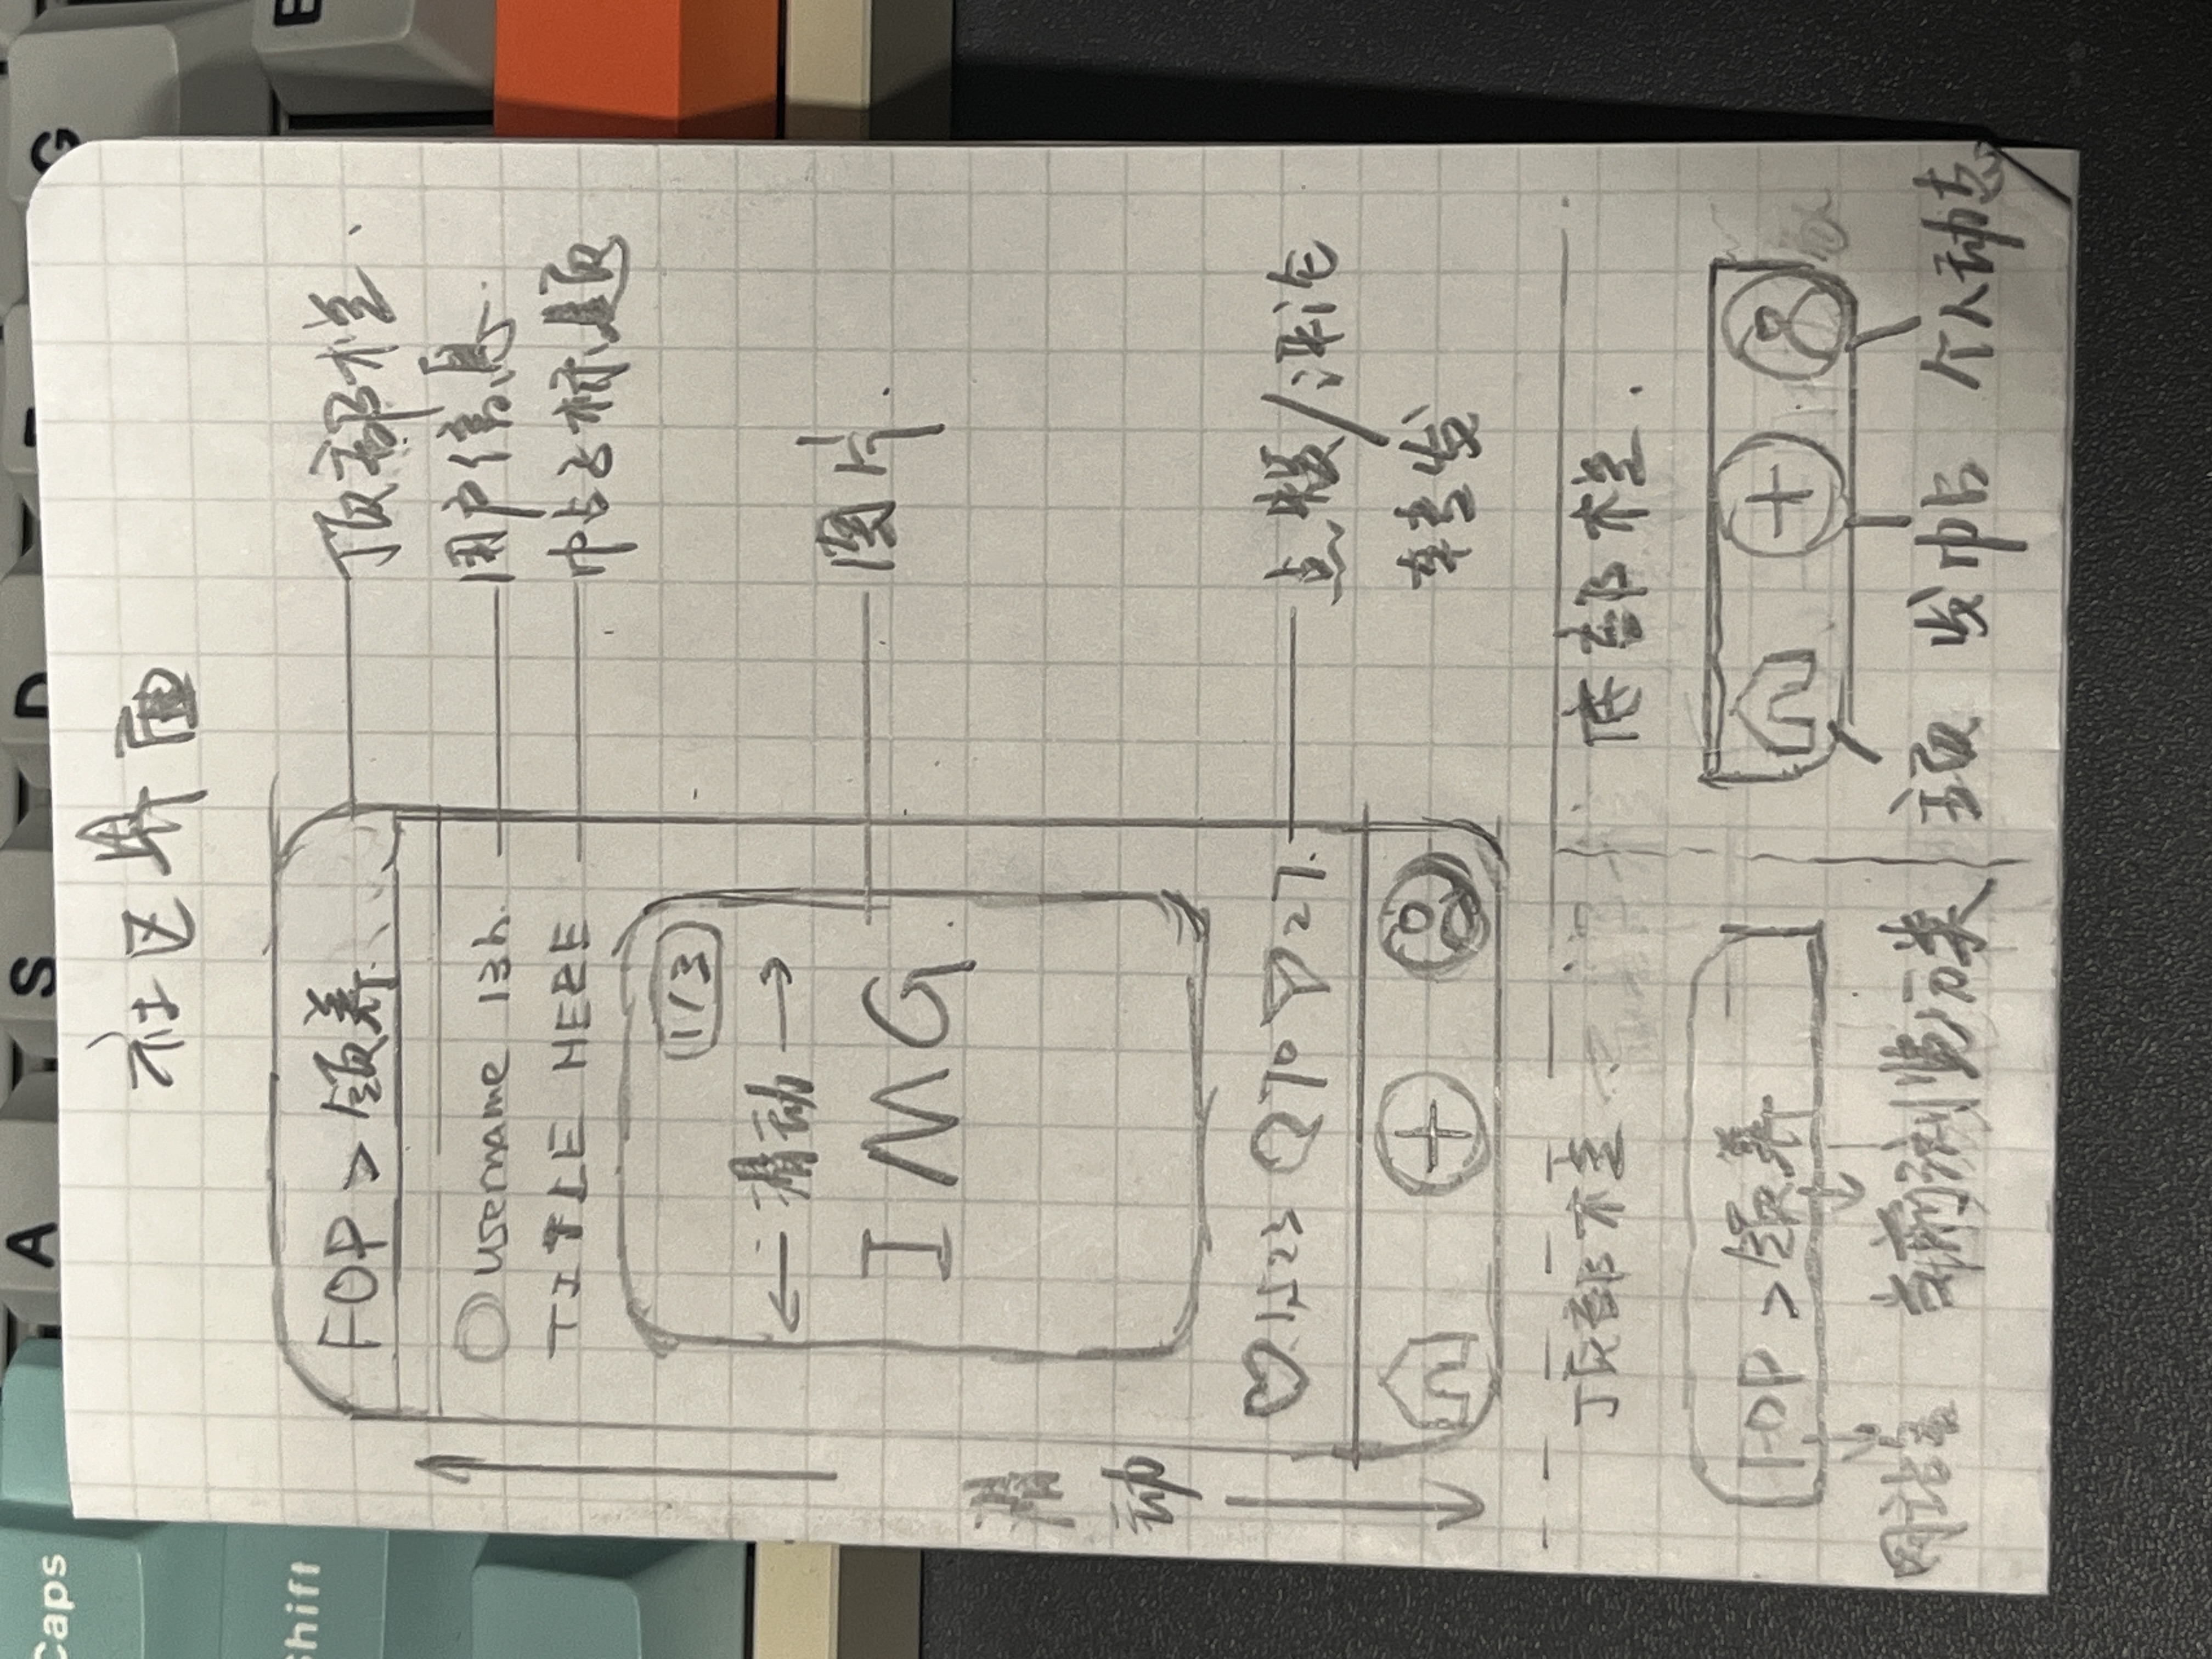 Caps
A
S
D
F
G
Shift
社区界面
FOP > 领养
顶部栏.
username 13h.
用户信息.
TITLE HERE
帖子标题
1/3
← 滑动 →
IMG.
图片.
滑动
1,523 70 27.
点赞/评论
转发
顶部栏.
底部栏.
FOP > 领养
网站名
当前浏览分类
主页
发帖
个人动态